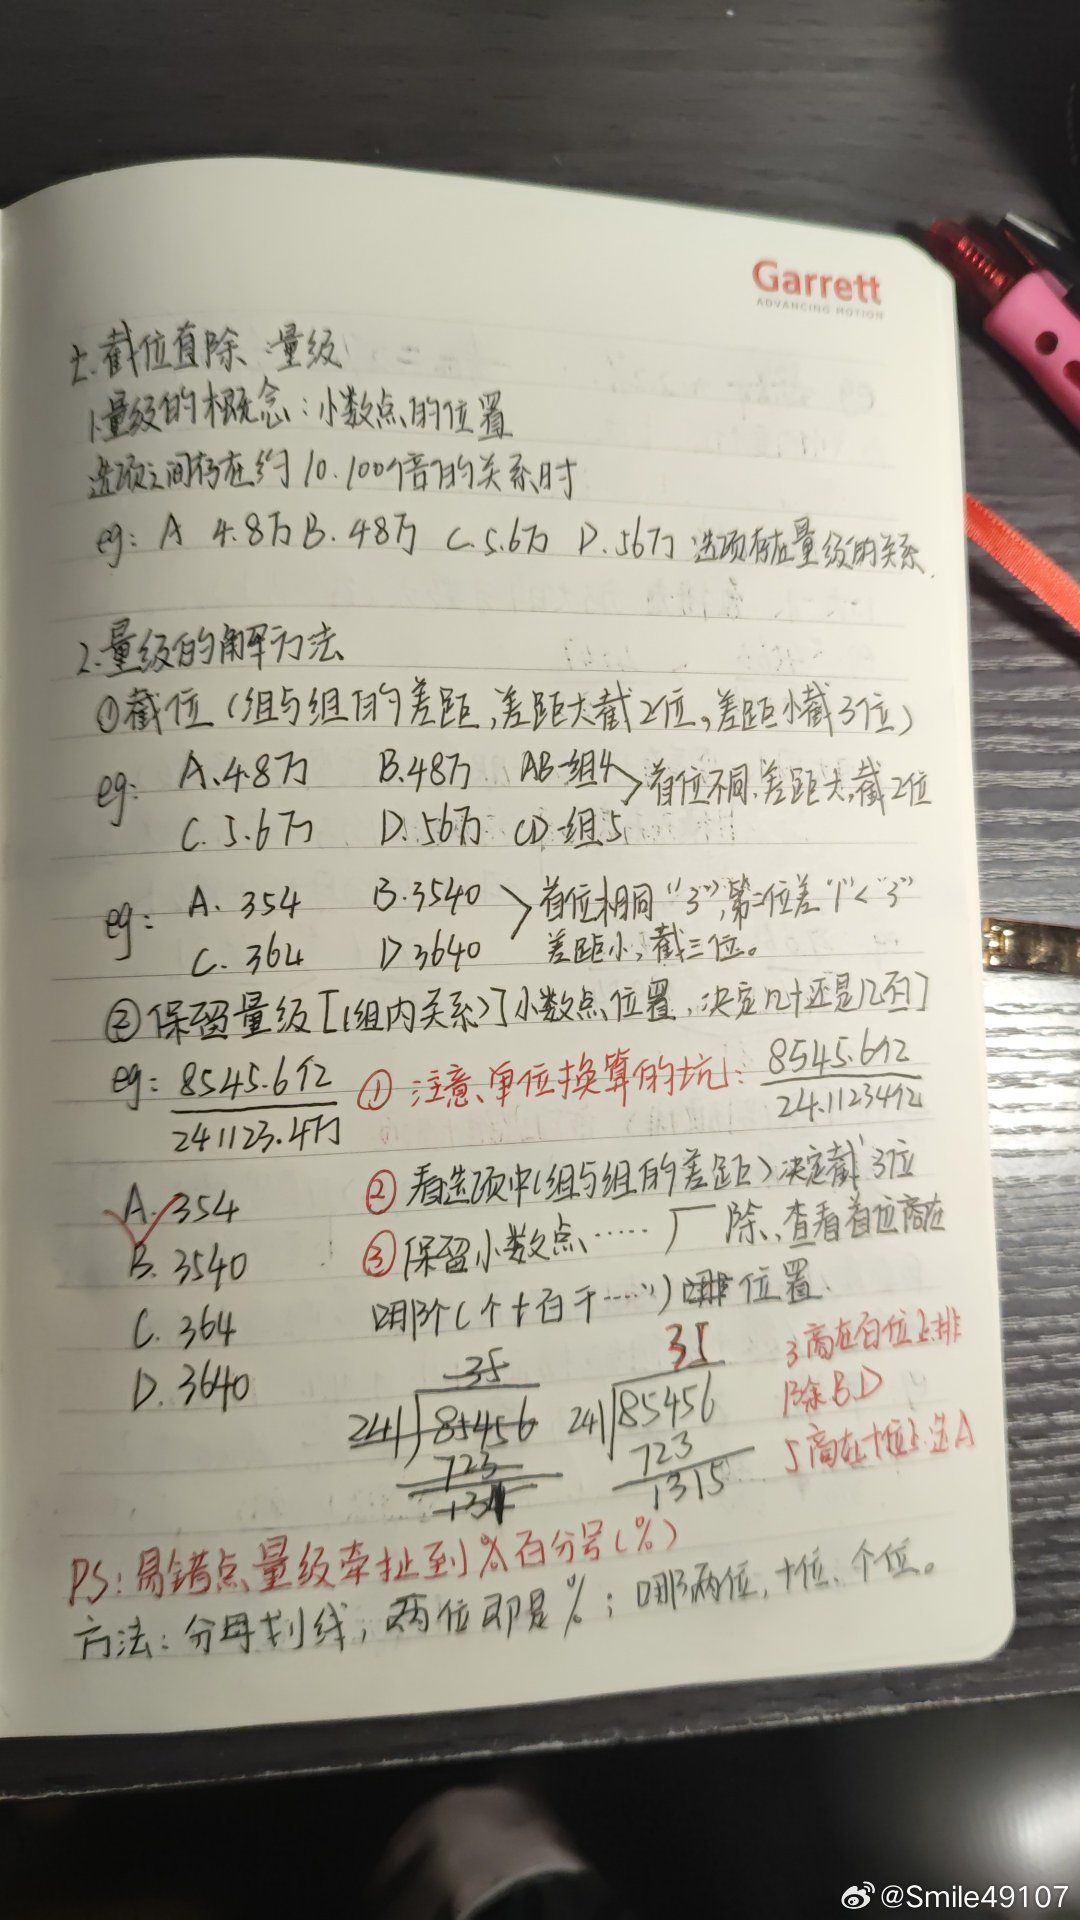 Garrett
ADVANCING MOTION
七.截位直除 量级
1.量级的概念:小数点的位置
选项之间存在约10.100个倍的关系时
eg: A 4.8万 B.48万 C.5.6万 D.56万 选项存在量级的关系.
2.量级的解方法
①截位(组与组间的差距,差距大截2位,差距小截3位)
eg: A.4.8万 B.48万 AB一组4 首位不同.差距大,截2位
C.5.6万 D.56万 CD一组5
eg: A.354 B.3540 首位相同"3",第二位差"1"<"3"
C.364 D3640 差距小,截三位。
②保留量级[(组内关系)]小数点位置,决定几十还是几百]
eg: 8545.6亿 ①注意单位换算的坑: 8545.6亿
241123.4万 24.11234亿
A.354 ②看选项中(组与组间的差距)决定截3位
B.3540 ③保留小数点……厂除,查看首位商在
C.364 哪个(个十百千……)位置.
D.3640
35 35
241 85456 241 85456
723 723
131 1315
3商在百位上排
除B.D
5商在十位上.选A
PS:易错点量级牵扯到%百分号(%)
方法:分母划线,两位即是%;哪两位,十位、个位。
@Smile49107